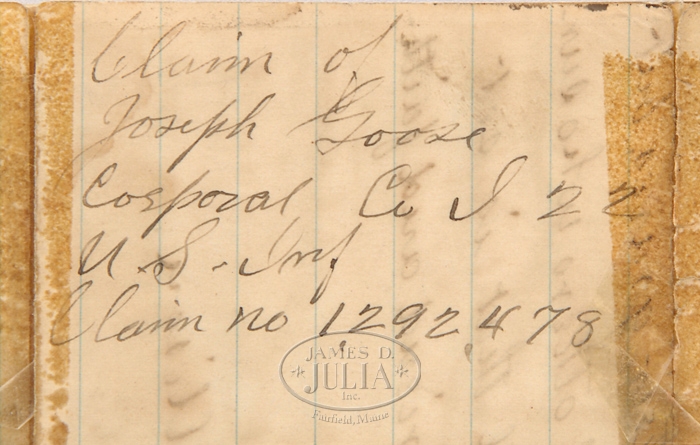 Claim of
Joseph Goose
Corporal Co I 22
U.S. Inf
Claim no 1,292,478
JAMES D.
JULIA
Inc.
Fairfield, Maine